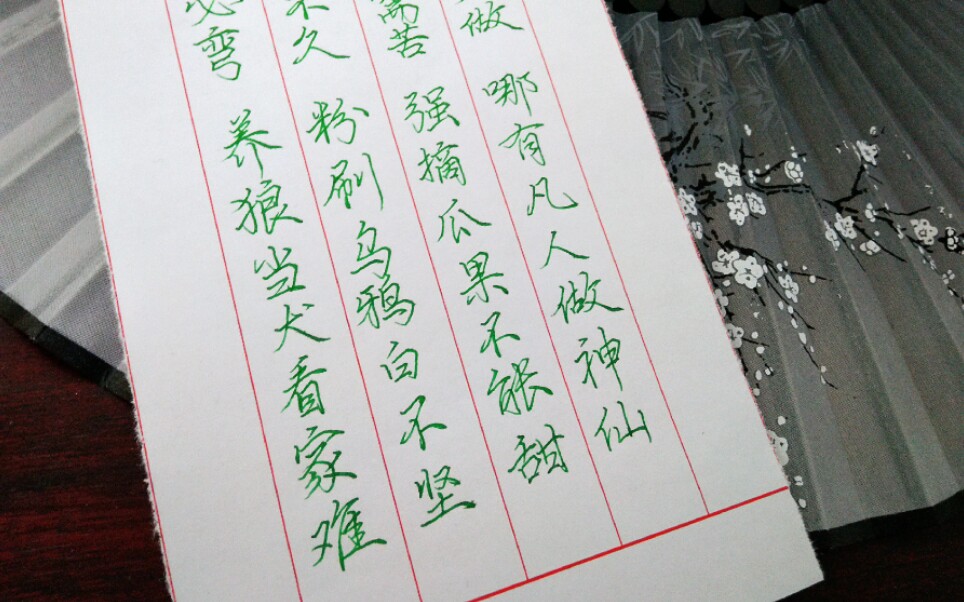 做 哪有凡人做神仙
需苦 强摘瓜果不能甜
不久 粉刷乌鸦白不坚
必弯 养狼当犬看家难